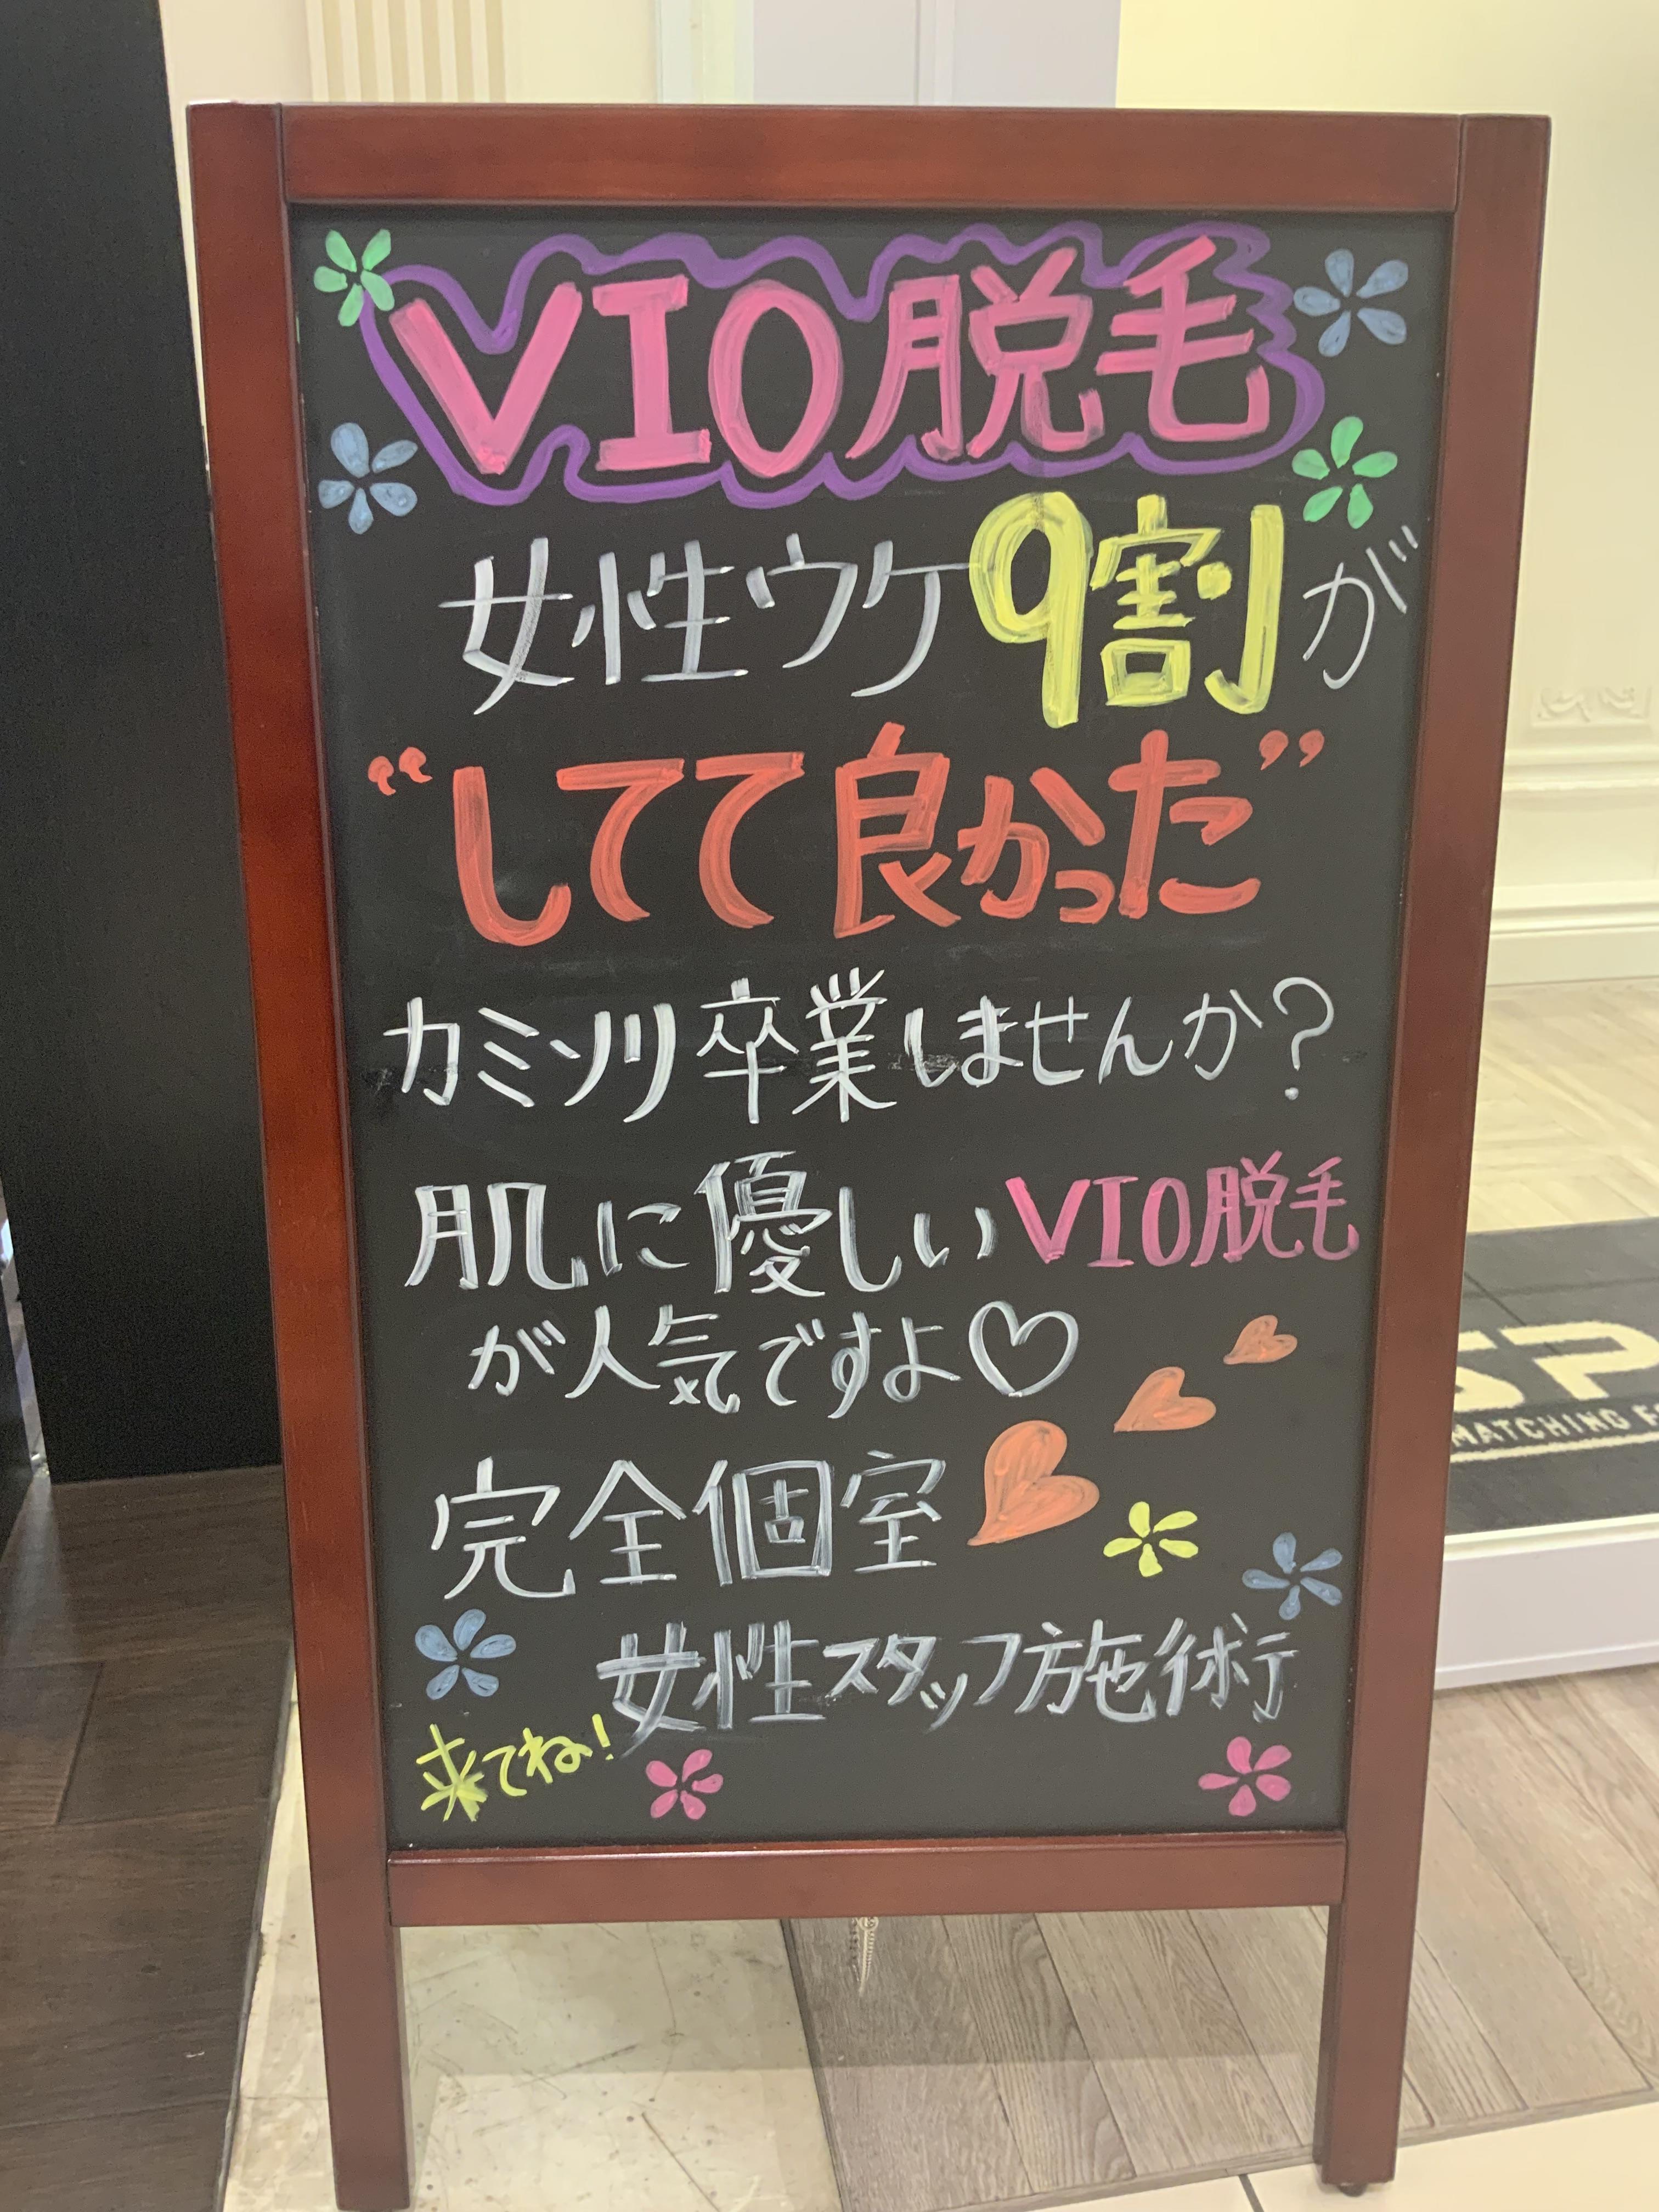 VIO脱毛
女性ウケ9割が
“してて良かった”
カミソリ卒業しませんか？
肌に優しいVIO脱毛
が人気ですよ♡
完全個室
女性スタッフ施術
来てね！
SP
MATCHING